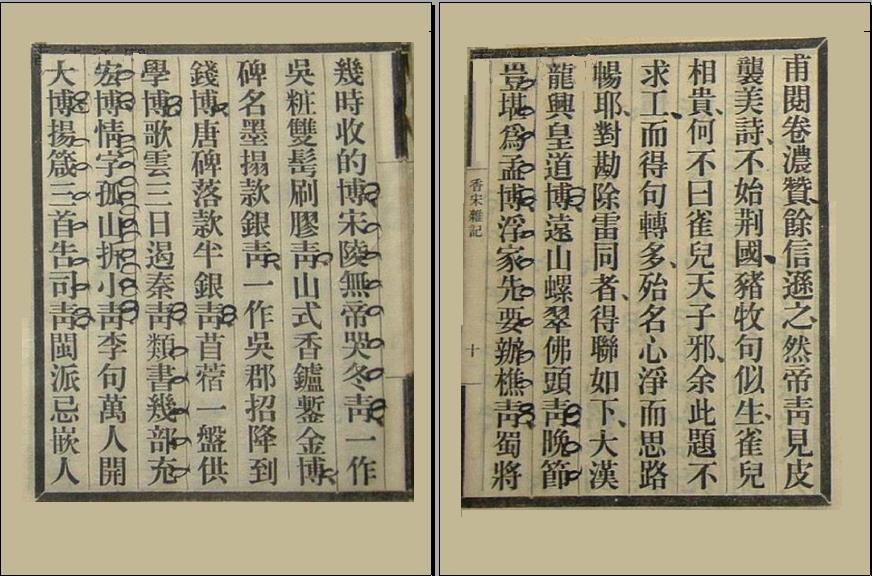 甫閱卷濃贊餘信遜之然帝靑見皮
襲美詩不始荆國豬牧句似生雀兒
相貴何不曰雀兒天子邪余此題不
求工而得句轉多殆名心淨而思路
暢耶對勘除雷同者得聯如下大漢
龍興皇道博遠山螺翠佛頭靑晚節
豈堪爲孟博浮家先要辦樵靑蜀將
香宋雜記
十
幾時收的博宋陵無帝哭冬靑一作
吳粧雙髩刷膠靑山式香鑪鏨金博
碑名墨搨款銀靑一作吳郡招降到
錢博唐碑落款半銀靑苜蓿一盤供
學博歌雲三日遏秦靑類書幾部充
宏博情字孤山拆小靑李句萬人開
大博揚箴三首告司靑閩派忌嵌人